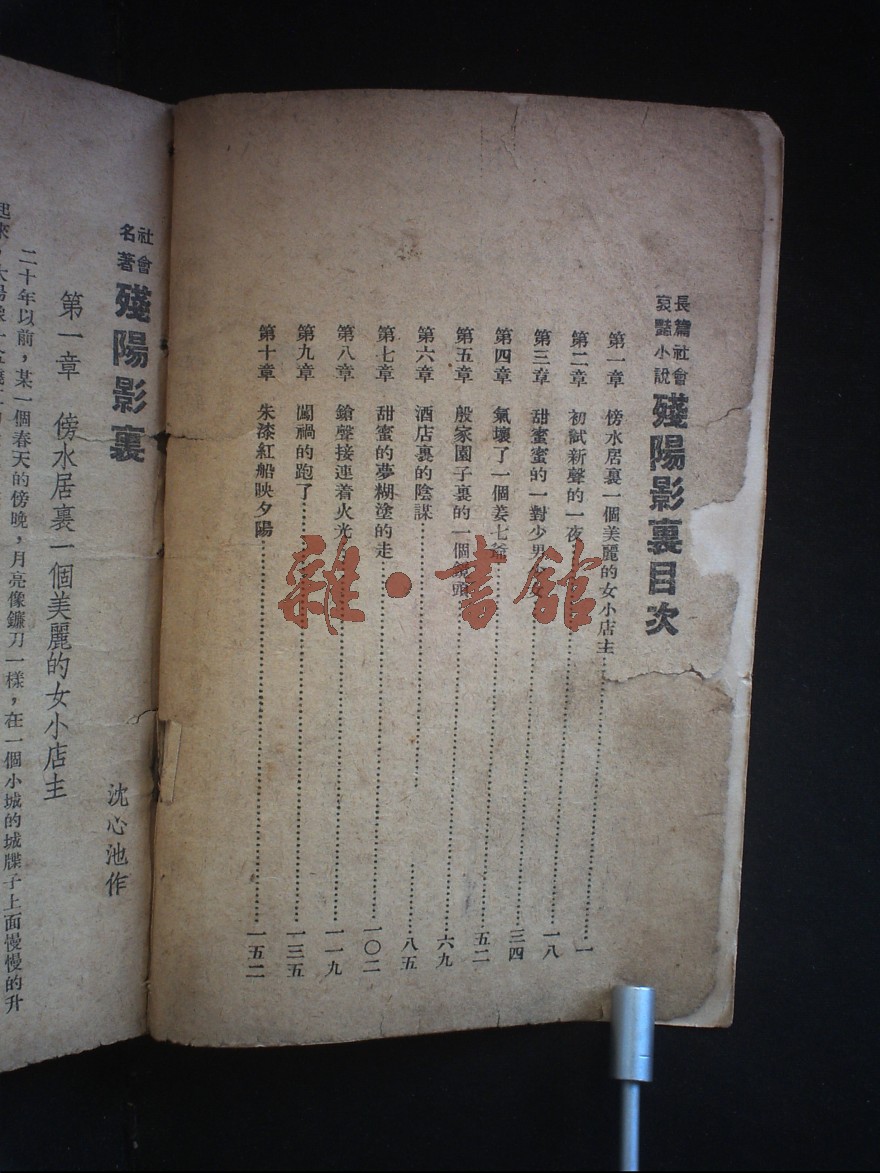 長篇社會
哀豔小說
殘陽影裏目次
第一章 傍水居裏一個美麗的女小店主……一
第二章 初試新聲的一夜……一八
第三章 甜蜜蜜的一對少男少女……三四
第四章 氣壞了一個姜七爺……五二
第五章 殷家園子裏的一個鏡頭……六九
第六章 酒店裏的陰謀……八五
第七章 甜蜜的夢糊塗的走……一〇二
第八章 鎗聲接連着火光……一一九
第九章 闖禍的跑了……一三五
第十章 朱漆紅船映夕陽……一五二
雜·書館
社會
名著
殘陽影裏
沈心池作
第一章 傍水居裏一個美麗的女小店主
二十年以前，某一個春天的傍晚，月亮像鐮刀一樣，在一個小城的城牒子上面慢慢的升
起來，太陽像